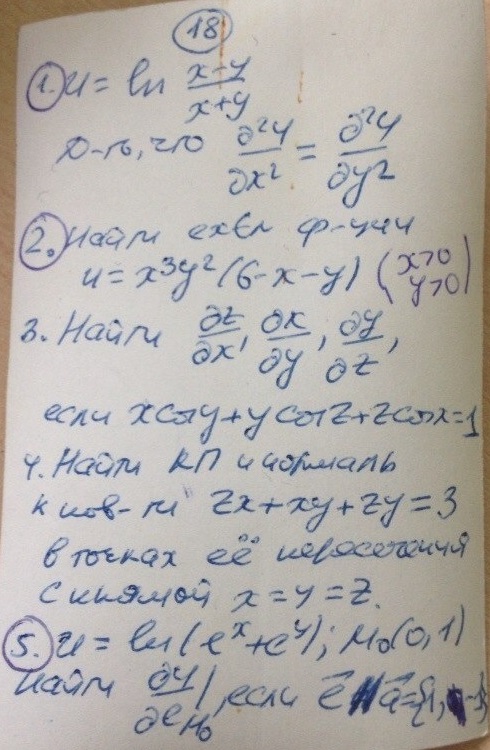 18
1. u = ln (x-y)/(x+y)
Д-ть, что ∂²u/∂x² = ∂²u/∂y²
2. Найти extr ф-ции
u = x³y²(6-x-y) (x>0 y>0)
3. Найти ∂z/∂x, ∂x/∂y, ∂y/∂z,
если x cos y + y cos z + z cos x = 1
4. Найти КП и нормаль
к пов-ти zx + xy + zy = 3
в точках её пересечения
с прямой x = y = z.
5. u = ln(eˣ + eʸ); M₀(0,1)
Найти ∂u/∂e|M₀, если e⃗ ∥ a⃗ = {1, -1}